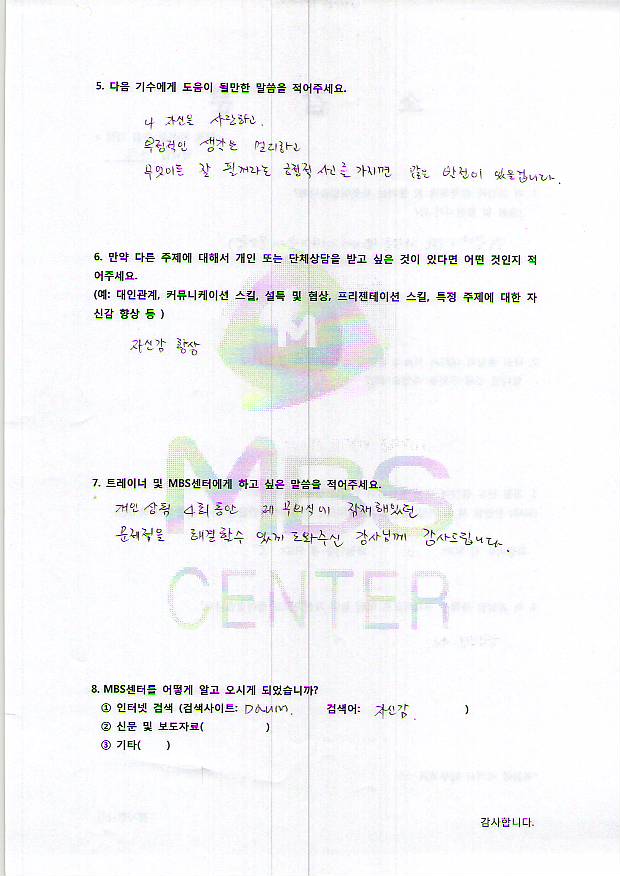 5. 다음 기수에게 도움이 될만한 말씀을 적어주세요.
나 자신을 사랑하고.
부정적인 생각은 멀리하고
무엇이든 잘 될꺼라는 긍정적 사고를 가지면 많은 발전이 있을겁니다.
6. 만약 다른 주제에 대해서 개인 또는 단체상담을 받고 싶은 것이 있다면 어떤 것인지 적
어주세요.
(예: 대인관계, 커뮤니케이션 스킬, 설득 및 협상, 프리젠테이션 스킬, 특정 주제에 대한 자
신감 향상 등 )
자신감 향상
MBS
CENTER
7. 트레이너 및 MBS센터에게 하고 싶은 말씀을 적어주세요.
개인 상담 4회동안 제 무의식에 잠재해있던
문제점을 해결할수 있게 도와주신 강사님께 감사드립니다.
8. MBS센터를 어떻게 알고 오시게 되었습니까?
① 인터넷 검색 (검색사이트: Daum. 검색어: 자신감. )
② 신문 및 보도자료( )
③ 기타( )
감사합니다.